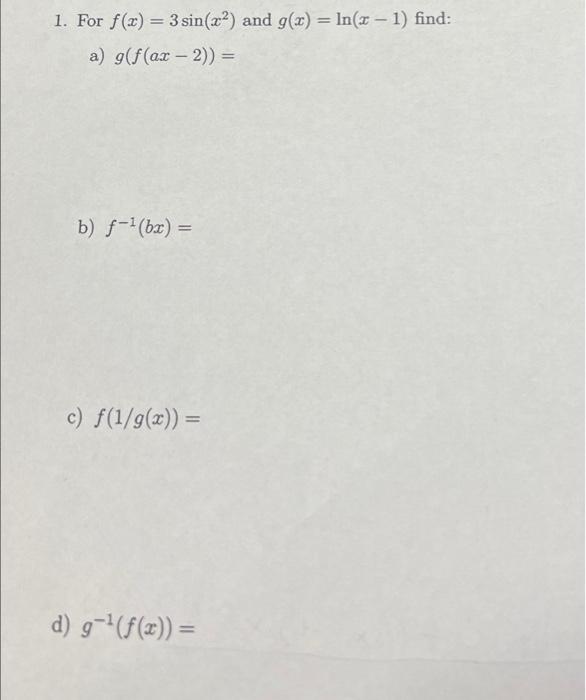 1. For f(x) = 3 sin(x²) and g(x) = ln(x − 1) find:
a) g(f(ax − 2)) =
b) f⁻¹(bx) =
c) f(1/g(x)) =
d) g⁻¹(f(x)) =